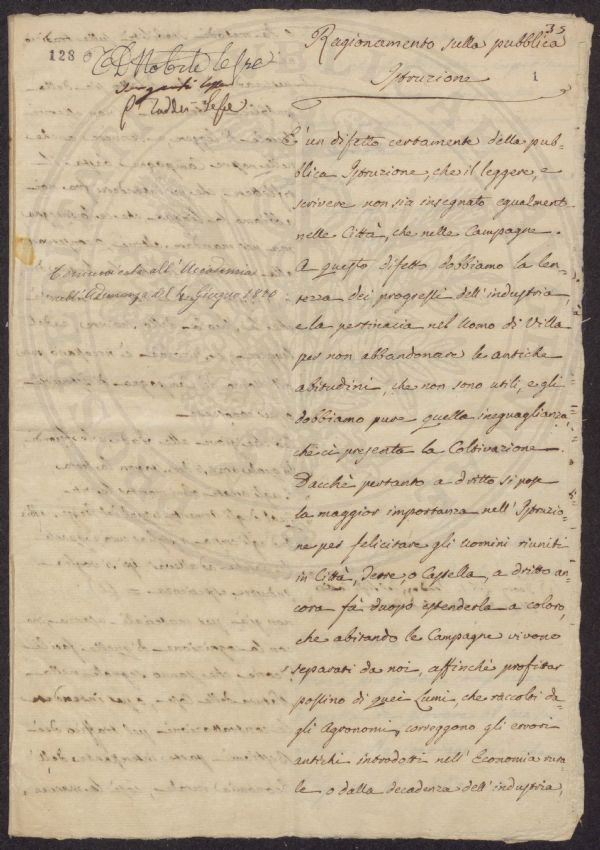 35
128
Ragionamento sulla pubblica
Istruzione
1
È un difetto certamente della pub-
blica Istruzione, che il leggere, e
scrivere non sia insegnato egualmente
nelle Città, che nelle Campagne.
A questo difetto dobbiamo la len-
tezza dei progressi dell'industria,
e la pertinacia nel Uomo di Villa
per non abbandonare le antiche
abitudini, che non sono utili, e gli
dobbiamo pure quella ineguaglianza,
che ci presenta la Coltivazione.
Dacchè pertanto a dritto si pose
la maggior importanza nell'Istruzio-
ne per felicitare gli uomini riuniti
in Città, Terre, o Castella, a dritto an-
cora fà duopo estenderla a coloro,
che abitando le Campagne vivono
separati da noi, affinchè profittar
possino di quei Lumi, che raccolti da-
gli Agronomi, correggono gli errori
antichi introdotti nell'Economia rura-
le, o dalla decadenza dell'industria,
all'Accademia
nell'Adunanza del Giugno